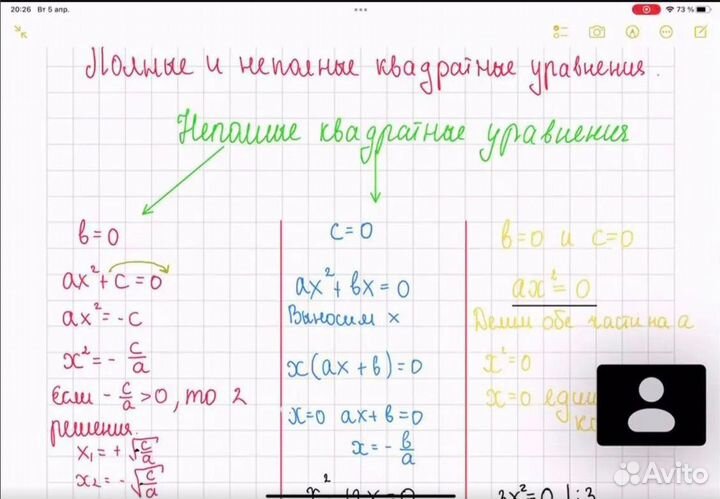 20:26 Вт 5 апр.
73 %
Полные и неполные квадратные уравнения.
Неполные квадратные уравнения
в=0
ax²+c=0
ax²=-c
x²=-c/a
Если -c/a>0, то 2
решения.
x₁=+√c/a
x₂=-√c/a
c=0
ax²+вx=0
Выносим x
x(ax+в)=0
x=0 ax+в=0
x=-в/a
в=0 и c=0
ax²=0
Делим обе части на a
x²=0
x=0
Avito